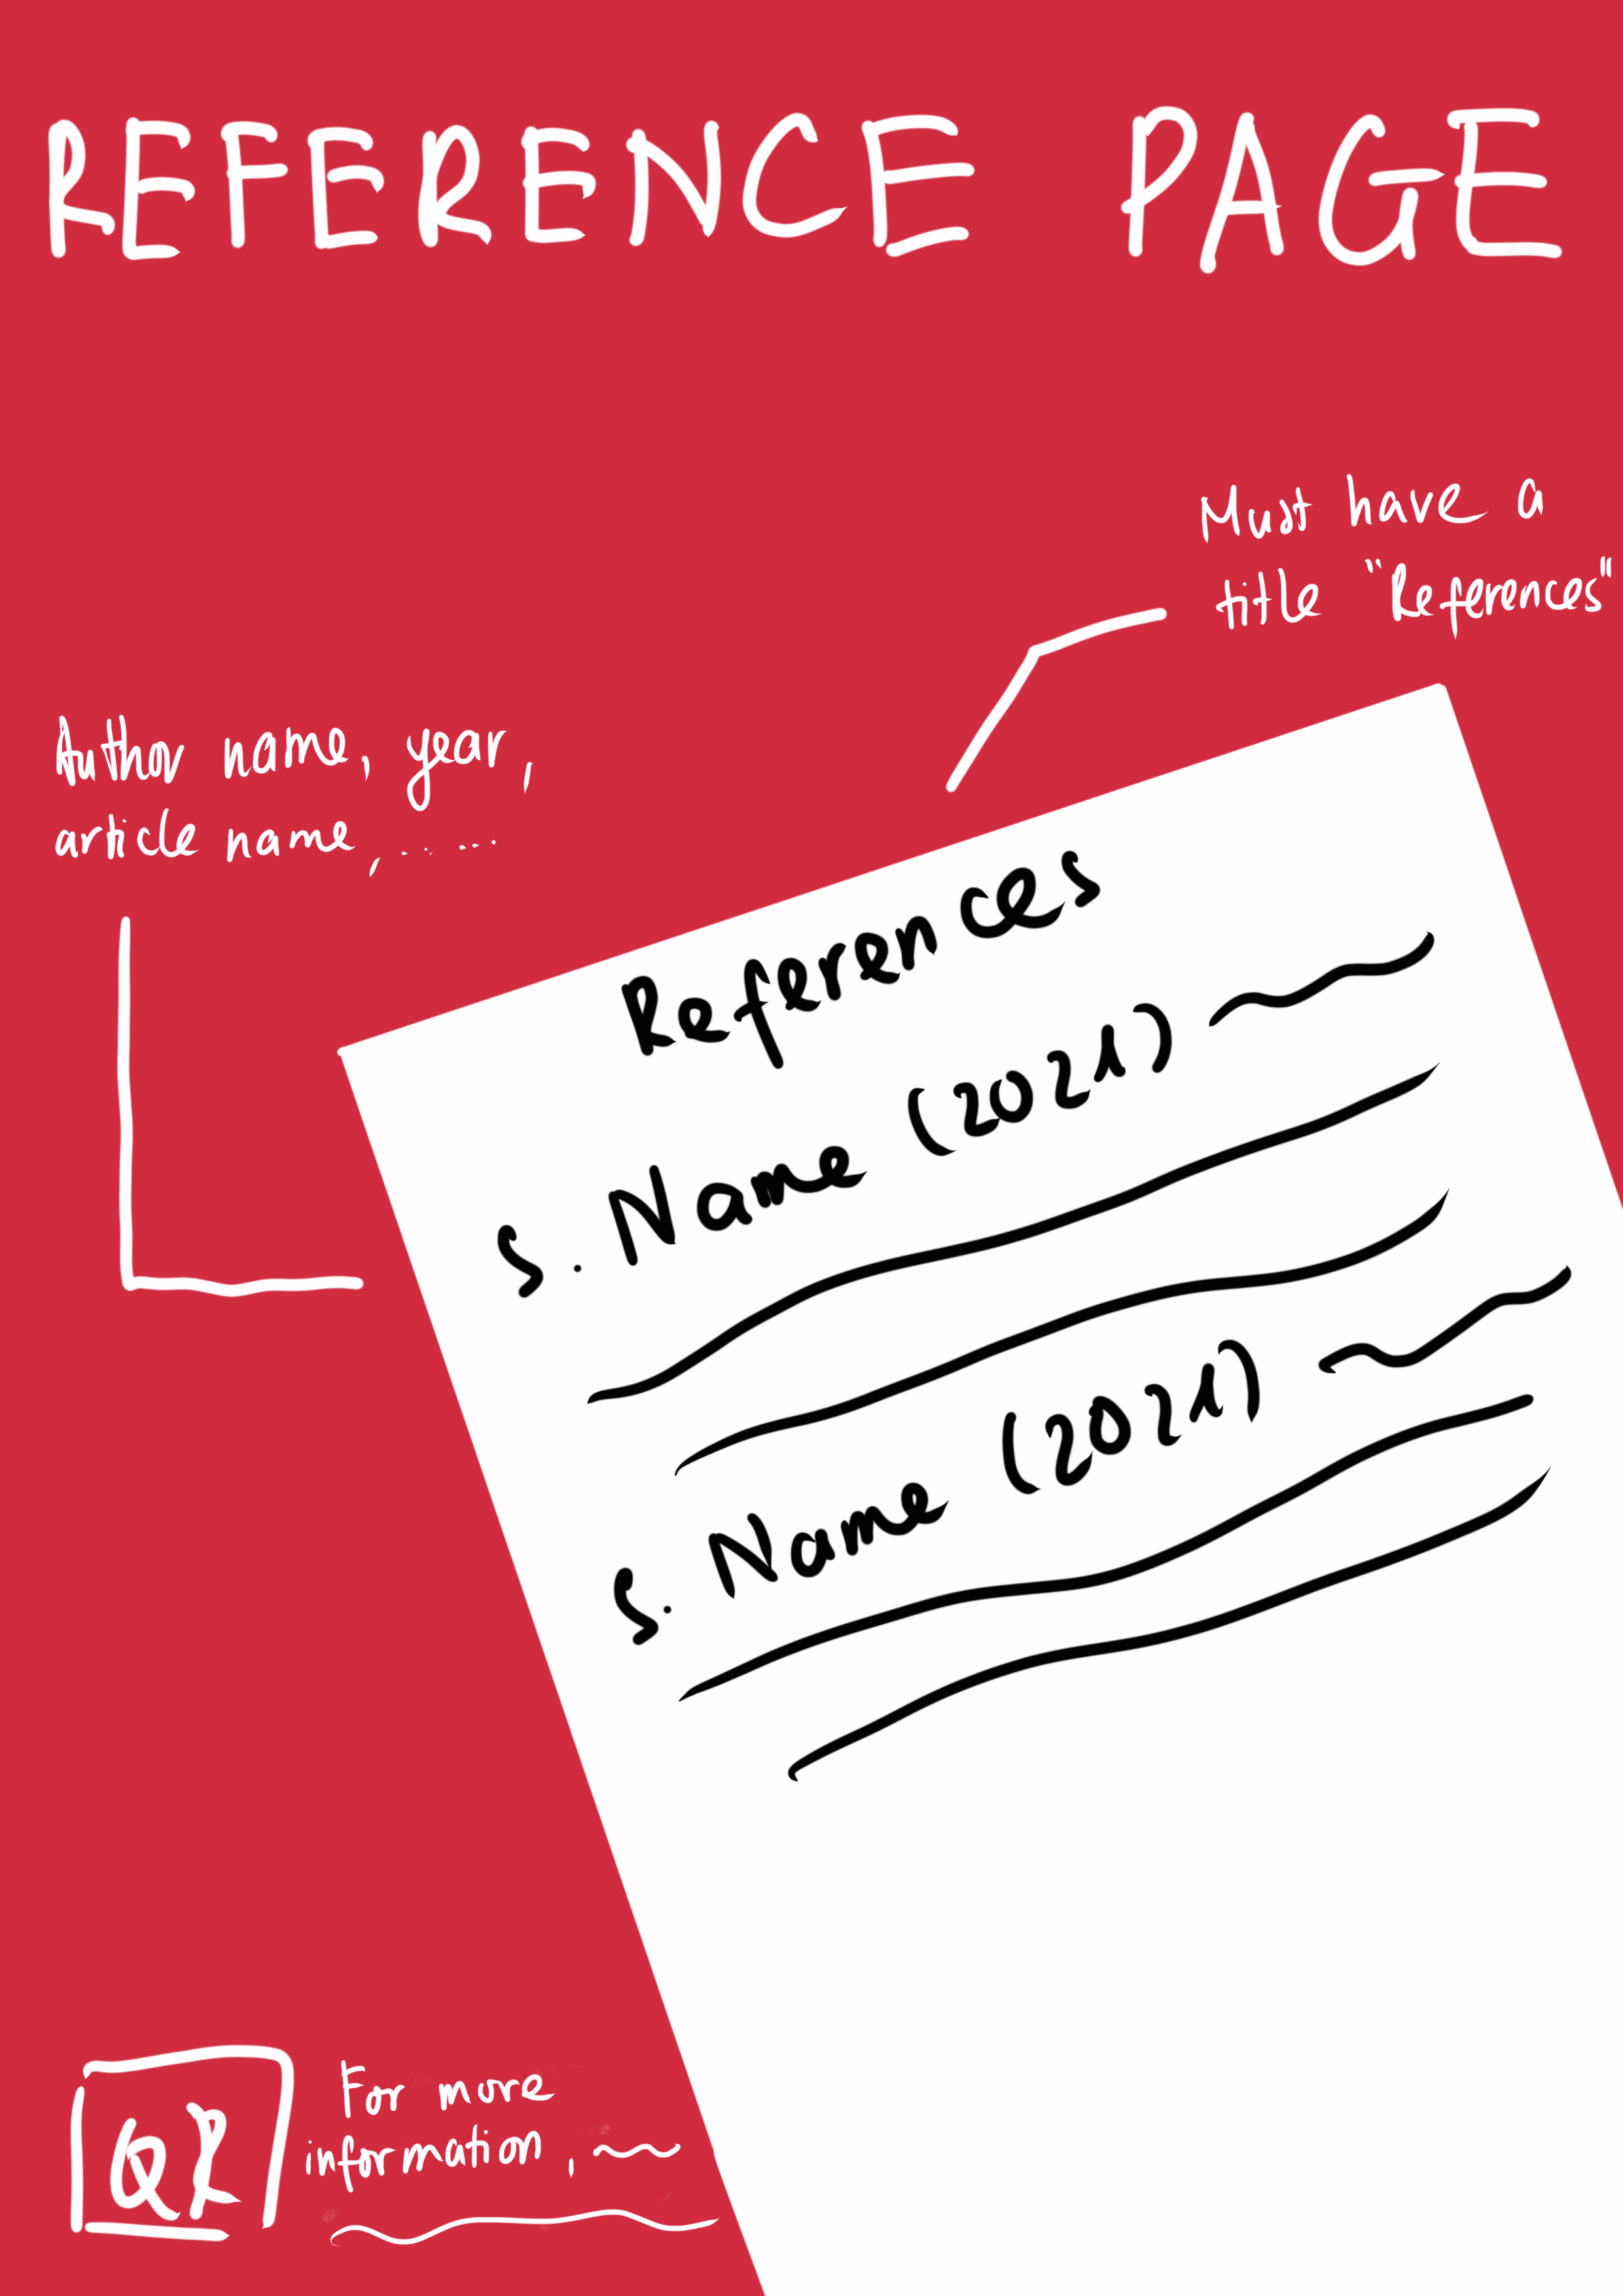 REFERENCE PAGE
Must have a
title "References"
Author name, year,
article name, .....
References
S. Name (2021)
S. Name (2021)
QR
For more
information,